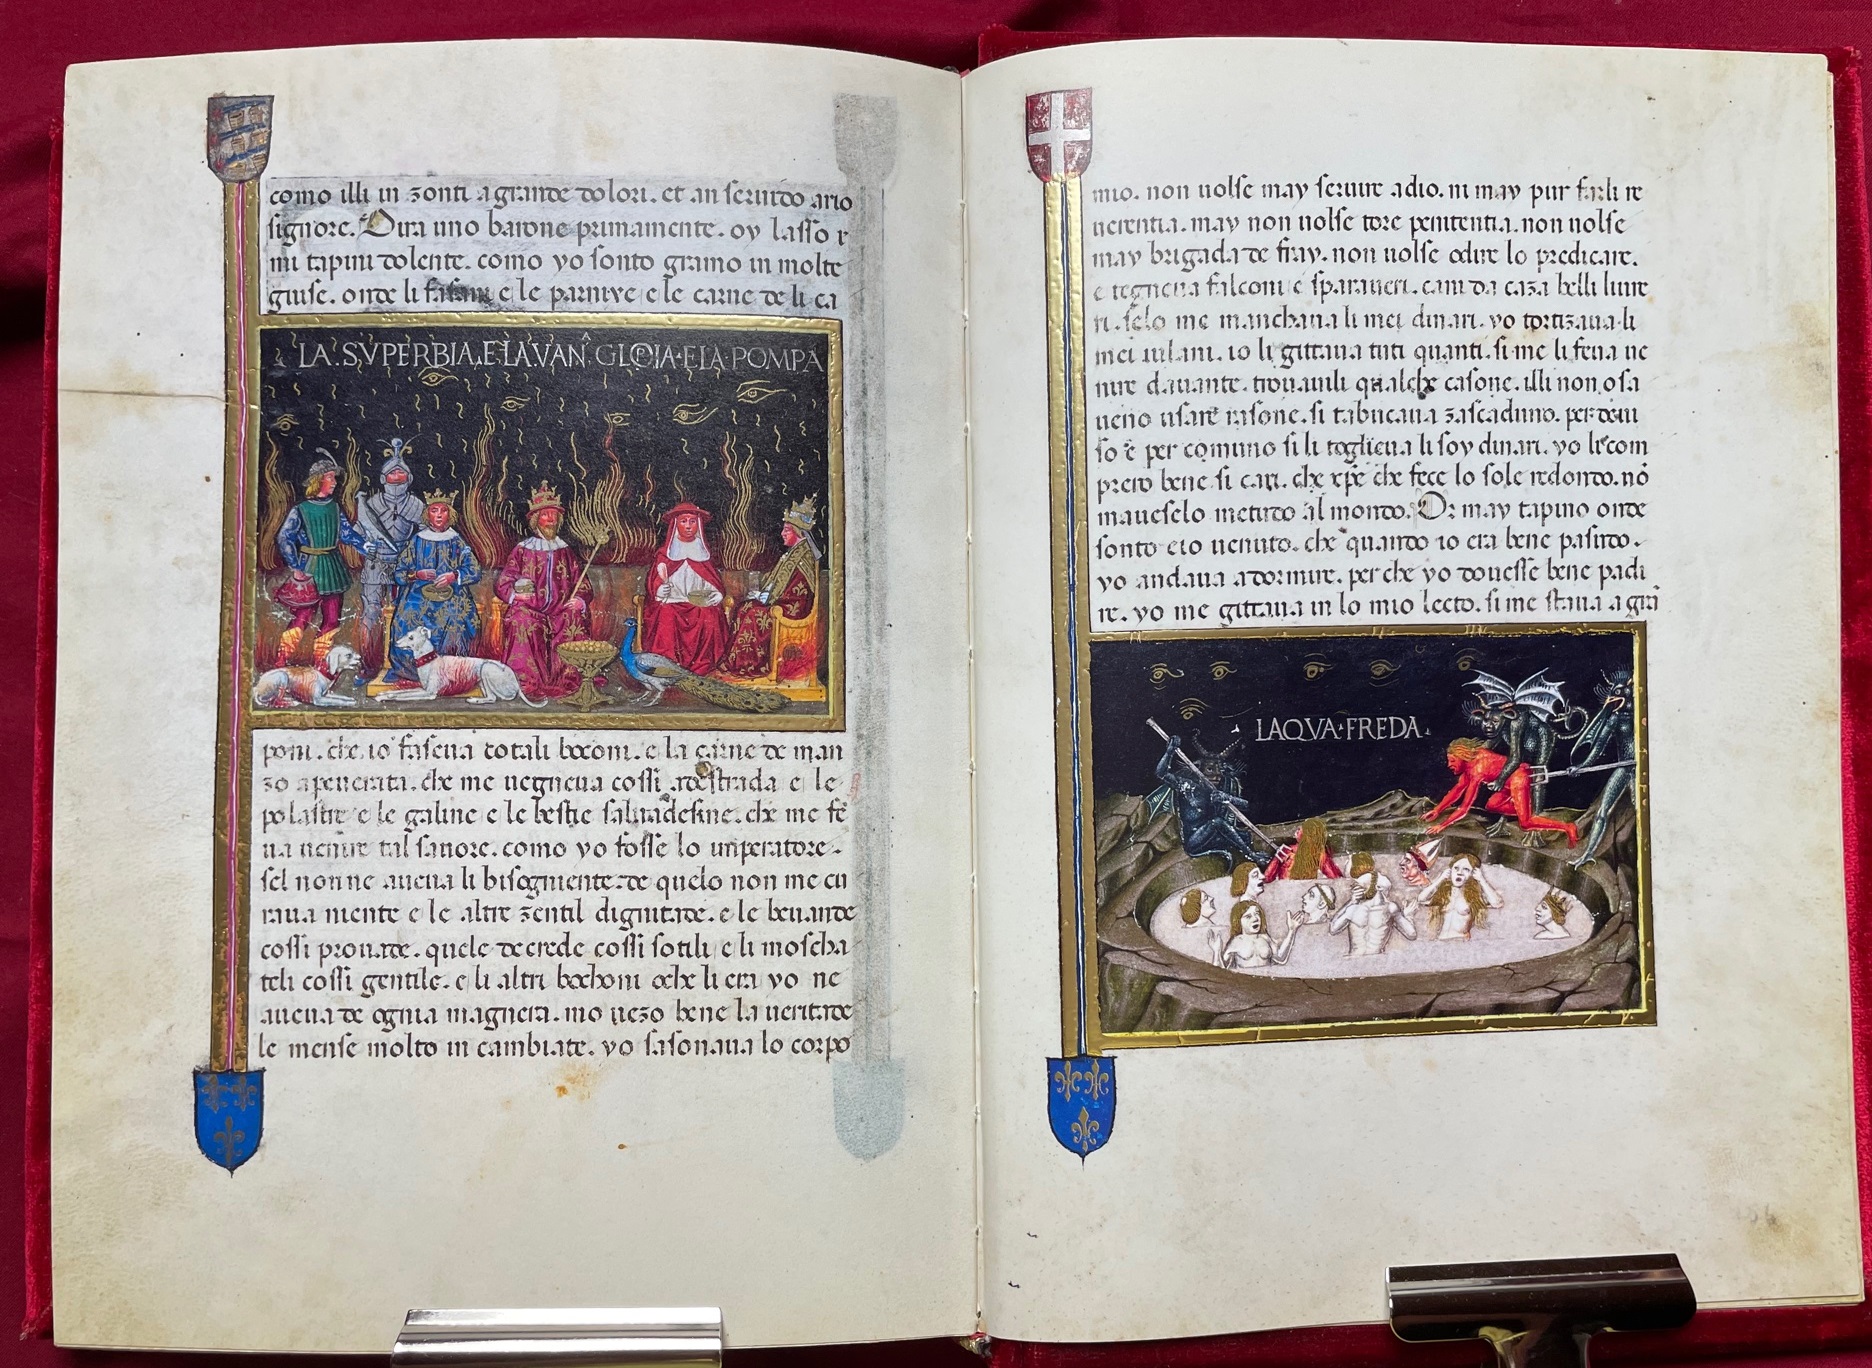 como illi in zonti a grande dolori. et an seruido ario
signore. Dira uno barone primamente. oy lasso
mi tapini dolente. como yo sonto gramo in molte
guise. onde li fasani e le parnixe e le carne de li ca
LA SVPERBIA.E.LA.VAN GLORIA.E.LA.POMPA
poni. che. io faseua cotali boconi. e la carne de man
zo apeuerata. che me uegneua cossi adestrada e le
polastre e le galine e le bestie saluadesine. che me fe
ua uenire tal sauore. como yo fosse lo imperatore.
sel non ne aueua li bisogniente. de quelo non me cu
raua niente e le altre zentil dignitade. e le beuande
cossi prouade. quele de crede cossi sotili e li moscha
teli cossi gentile. e li altri bochoni oche li era yo ne
aueua de ognia magnera. mo uezo bene la ueritade
le mense molto in cambiate. yo sasonaua lo corpo
mio. non uolse may seruire a dio. ni may pur farli re
uerentia. may non uolse tore penitentia. non uolse
may brigada de fray. non uolse odire lo predicare.
e tegneua falconi e sparaueri. cani da caza belli liure
ri. selo me manchaua li mei dinari. yo tortizaua li
mei uilani. io li gittaua tuti quanti. si me li feua ue
nire dauante. trouauili qualche casone. illi non osa
ueno usare rasone. si tabucaua zascaduno. per deui
so e per comuno si li toglieua li soy dinari. yo le com
prero bene si cari. che xpe che fece lo sole redondo. no
mauesselo metudo al mondo. Or may tapino onde
sonto eio uenuto. che quando io era bene pasudo.
yo andaua a dormire. per che yo douesse bene padi
re. yo me gittaua in lo mio lecto. si me staua a gra
LAQVA.FREDA.